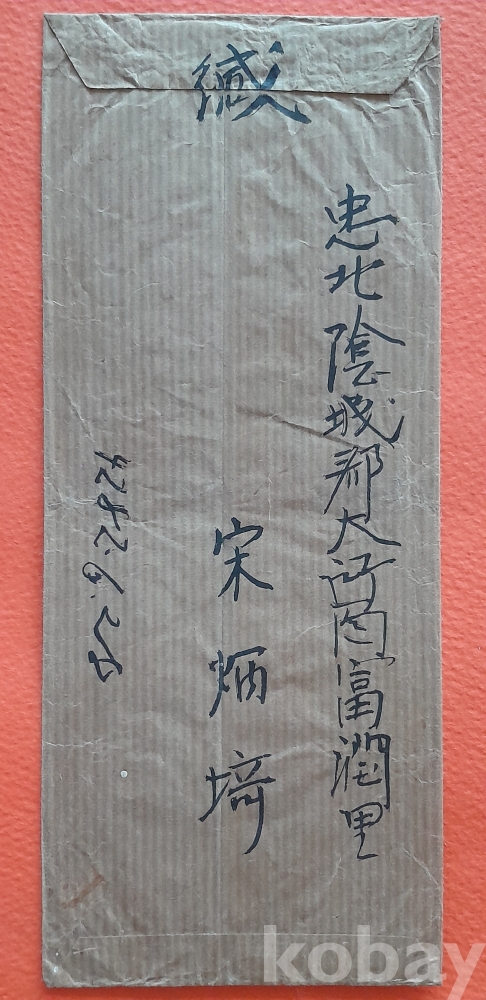 緘
忠北陰城郡大所面富潤里
宋炳埼
4282.6.25
kobay